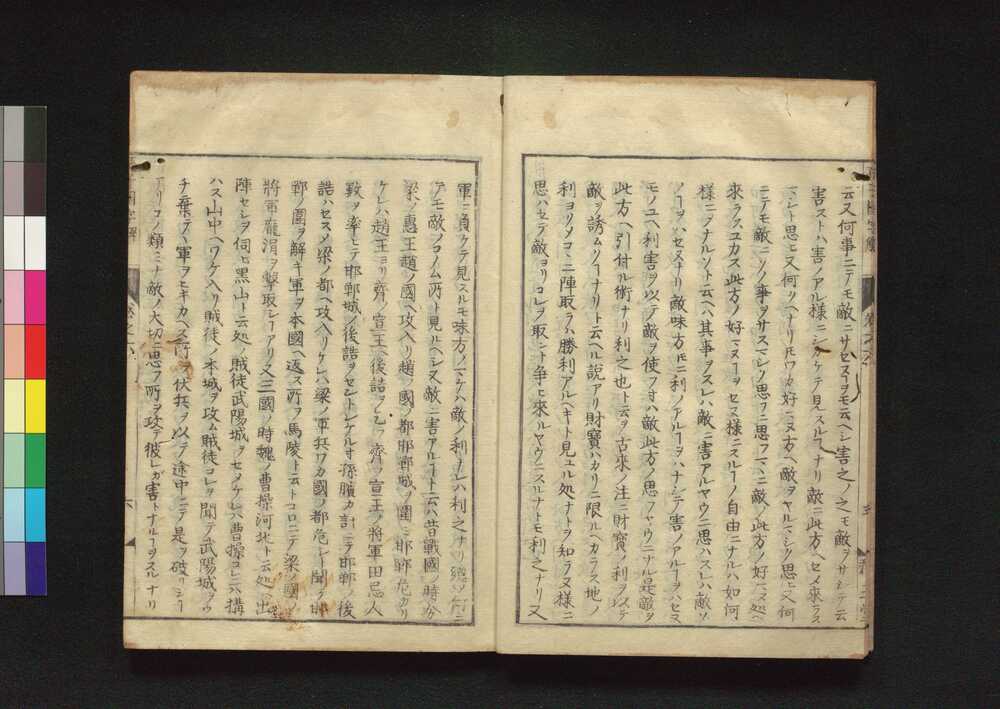 云又何事ニテモ敵ニサセヌヿヲモ云ヘシ害之ノ之モ敵ヲサシテ云
害ストハ害ノアル様ニシカケテ見スルヿナリ敵ニ此方ヘセメ來ラス
マシト思ヒ又何ヿヘナリ𪜈ワカ好ニヌ方ヘ敵ヲヤルマシク思ヒ又何
ニテモ敵ニソノ事ヲサスマシク思フニ思フマヽニ敵ノ此方ノ好ニヌ処ヘ
來ラスユカス此方ノ好ニヌヿヲセヌ様ニスルヿノ自由ニナルハ如何
様ニシタルソト云ヘハ其事ヲスレハ敵ニ害アルヤウニ思ハスレハ敵ソ
ノヿヲハセヌナリ敵味方𪜈ニ利ノアルヿヲハナシテ害ノアルヿヲハセヌ
モノユヘ利害ヲ以テ敵ヲ使フ寸ハ敵此方ノ思フヤウニナル是敵ヲ
此方ヘ引付ル術ナリ利之也ト云ヲ古來ノ注ニ財寳ノ利ヲ以テ
敵ヲ誘ムクヿナリト云ヘル説アリ財寳ハカリニ限ルヘカラス地ノ
利ヨリメコヽニ陣取ラハ勝利アルヘキト見ユル処ナトヲ知ラヌ様ニ
思ハセテ敵ヨリコレヲ取ント争ヒ來ルヤウニスルナトモ利之ナリ又
軍ニ負ケテ見スルモ味方ノマケハ敵ノ利ナレハ利之ナリ總ソ何ニ
テモ敵ノコノム所ト見ルヘシ又敵ニ害アルヿト云ハ昔戰國ノ時分
梁ノ惠王趙ノ國ヘ攻入リ趙ノ國ノ都邯鄲城ヲ圍ミ邯鄲危カリ
ケレハ趙王ヨリ齊ノ宣王ヘ後詰ヲ乞フ齊ノ宣王ノ將軍田忌人
數ヲ率ヒテ邯鄲城ノ後詰ヲセントシケル寸孫臏カ計ニテ邯鄲ノ後
詰ハセスメ梁ノ都ヘ攻入リケレハ梁ノ軍兵ワカ國ノ都危シト聞テ邯
鄲ノ圍ヲ解キ軍ヲ本國ヘ返ス所ヲ馬陵ト云トコロニテ梁ノ國ノ
將軍龐涓ヲ撃取シヿアリ又三國ノ時魏ノ曹操河北ト云処ヘ出
陣セシヲ伺ヒ黒山ト云処ノ賊徒武陽城ヲセメケレハ曹操コレニハ搆
ハス山中ヘワケ入リ賊徒ノ本城ヲ攻ム賊徒コレヲ聞テ武陽城ヲウ
チ棄テヽ軍ヲヒキカヘス所ヲ伏兵ヲ以テ途中ニテ是ヲ破リシヿ
アリコノ類ミナ敵ノ大切ニ思フ所ヲ攻テ彼レガ害トナルヿヲスルナリ